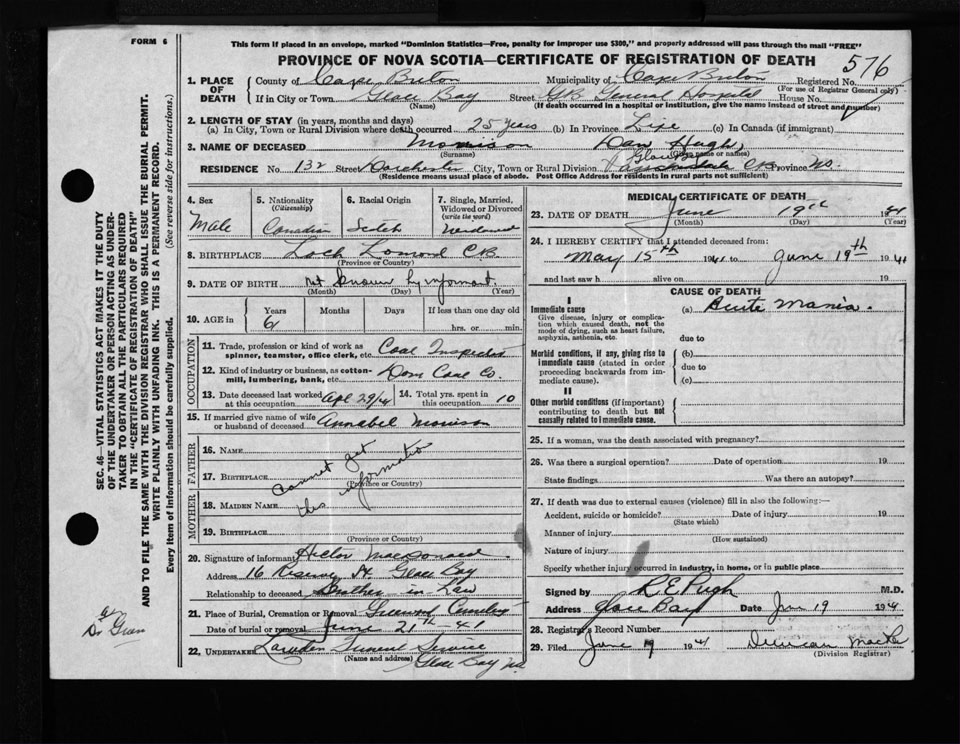 FORM 6
This form if placed in an envelope, marked "Dominion Statistics—Free, penalty for improper use $300," and properly addressed will pass through the mail "FREE"
PROVINCE OF NOVA SCOTIA—CERTIFICATE OF REGISTRATION OF DEATH
576
1. PLACE OF DEATH County of Cape Breton Municipality of Cape Breton Registered No.
(For use of Registrar General only)
If in City or Town Glace Bay Street G.B. General Hospital House No.
(If death occurred in a hospital or institution, give the name instead of street and number)
2. LENGTH OF STAY (in years, months and days)
(a) In City, Town or Rural Division where death occurred 25 years (b) In Province Life (c) In Canada (if immigrant)
3. NAME OF DECEASED Morrison Dan Hugh
(Surname) (Given name or names)
RESIDENCE No. 132 Street Dorchester City, Town or Rural Division Glace Bay CB Province NS.
(Residence means usual place of abode. Post Office Address for residents in rural parts not sufficient)
4. Sex
Male
5. Nationality
(Citizenship)
Canadian
6. Racial Origin
Scotch
7. Single, Married, Widowed or Divorced
(write the word)
Widowed
8. BIRTHPLACE Loch Lomond CB
(Province or Country)
9. DATE OF BIRTH Not Known by informant
(Month) (Day) (Year)
10. AGE in Years Months Days If less than one day old
61 hrs. or min.
OCCUPATION
11. Trade, profession or kind of work as spinner, teamster, office clerk, etc. Coal Inspector
12. Kind of industry or business, as cotton-mill, lumbering, bank, etc. Dom Coal Co.
13. Date deceased last worked at this occupation Apl 29/41
14. Total yrs. spent in this occupation 10
15. If married give name of wife or husband of deceased Annabel Morrison
FATHER
16. Name
17. Birthplace
(Province or Country)
Cannot get this information
MOTHER
18. Maiden Name
19. Birthplace
(Province or Country)
20. Signature of informant Hector MacDonald
Address 16 Reserve St Glace Bay
Relationship to deceased Brother in Law
21. Place of Burial, Cremation or Removal Greenwood Cemetery
Date of burial or removal June 21th - 41
22. UNDERTAKER Funeral Service
(Name and address) Glace Bay NS.
MEDICAL CERTIFICATE OF DEATH
23. DATE OF DEATH June 19th 1941
(Month) (Day) (Year)
24. I HEREBY CERTIFY that I attended deceased from:
May 15th 1941 to June 19th 1941
and last saw h alive on 19
CAUSE OF DEATH
I
Immediate cause
Give disease, injury or complication which caused death, not the mode of dying, such as heart failure, asphyxia, asthenia, etc.
(a) Acute Mania.
due to
Morbid conditions, if any, giving rise to immediate cause (stated in order proceeding backwards from immediate cause).
(b)
due to
(c)
II
Other morbid conditions (if important) contributing to death but not causally related to immediate cause.
25. If a woman, was the death associated with pregnancy?
26. Was there a surgical operation? Date of operation 19
State findings Was there an autopsy?
27. If death was due to external causes (violence) fill in also the following:—
Accident, suicide or homicide? Date of injury 19
(State which)
Manner of injury
(How sustained)
Nature of injury
Specify whether injury occurred in industry, in home, or in public place
Signed by R.E. Pugh M.D.
Address Glace Bay Date June 19 1941
28. Registrar's Record Number
29. Filed June 9 1941 Duncan
(Division Registrar)
SEC. 46—VITAL STATISTICS ACT MAKES IT THE DUTY
OF THE UNDERTAKER OR PERSON ACTING AS UNDER-
TAKER TO OBTAIN ALL THE PARTICULARS REQUIRED
IN THE "CERTIFICATE OF REGISTRATION OF DEATH"
AND TO FILE THE SAME WITH THE DIVISION REGISTRAR WHO SHALL ISSUE THE BURIAL PERMIT.
WRITE PLAINLY WITH UNFADING INK. THIS IS A PERMANENT RECORD.
Every item of information should be carefully supplied. (See reverse side for instructions.)